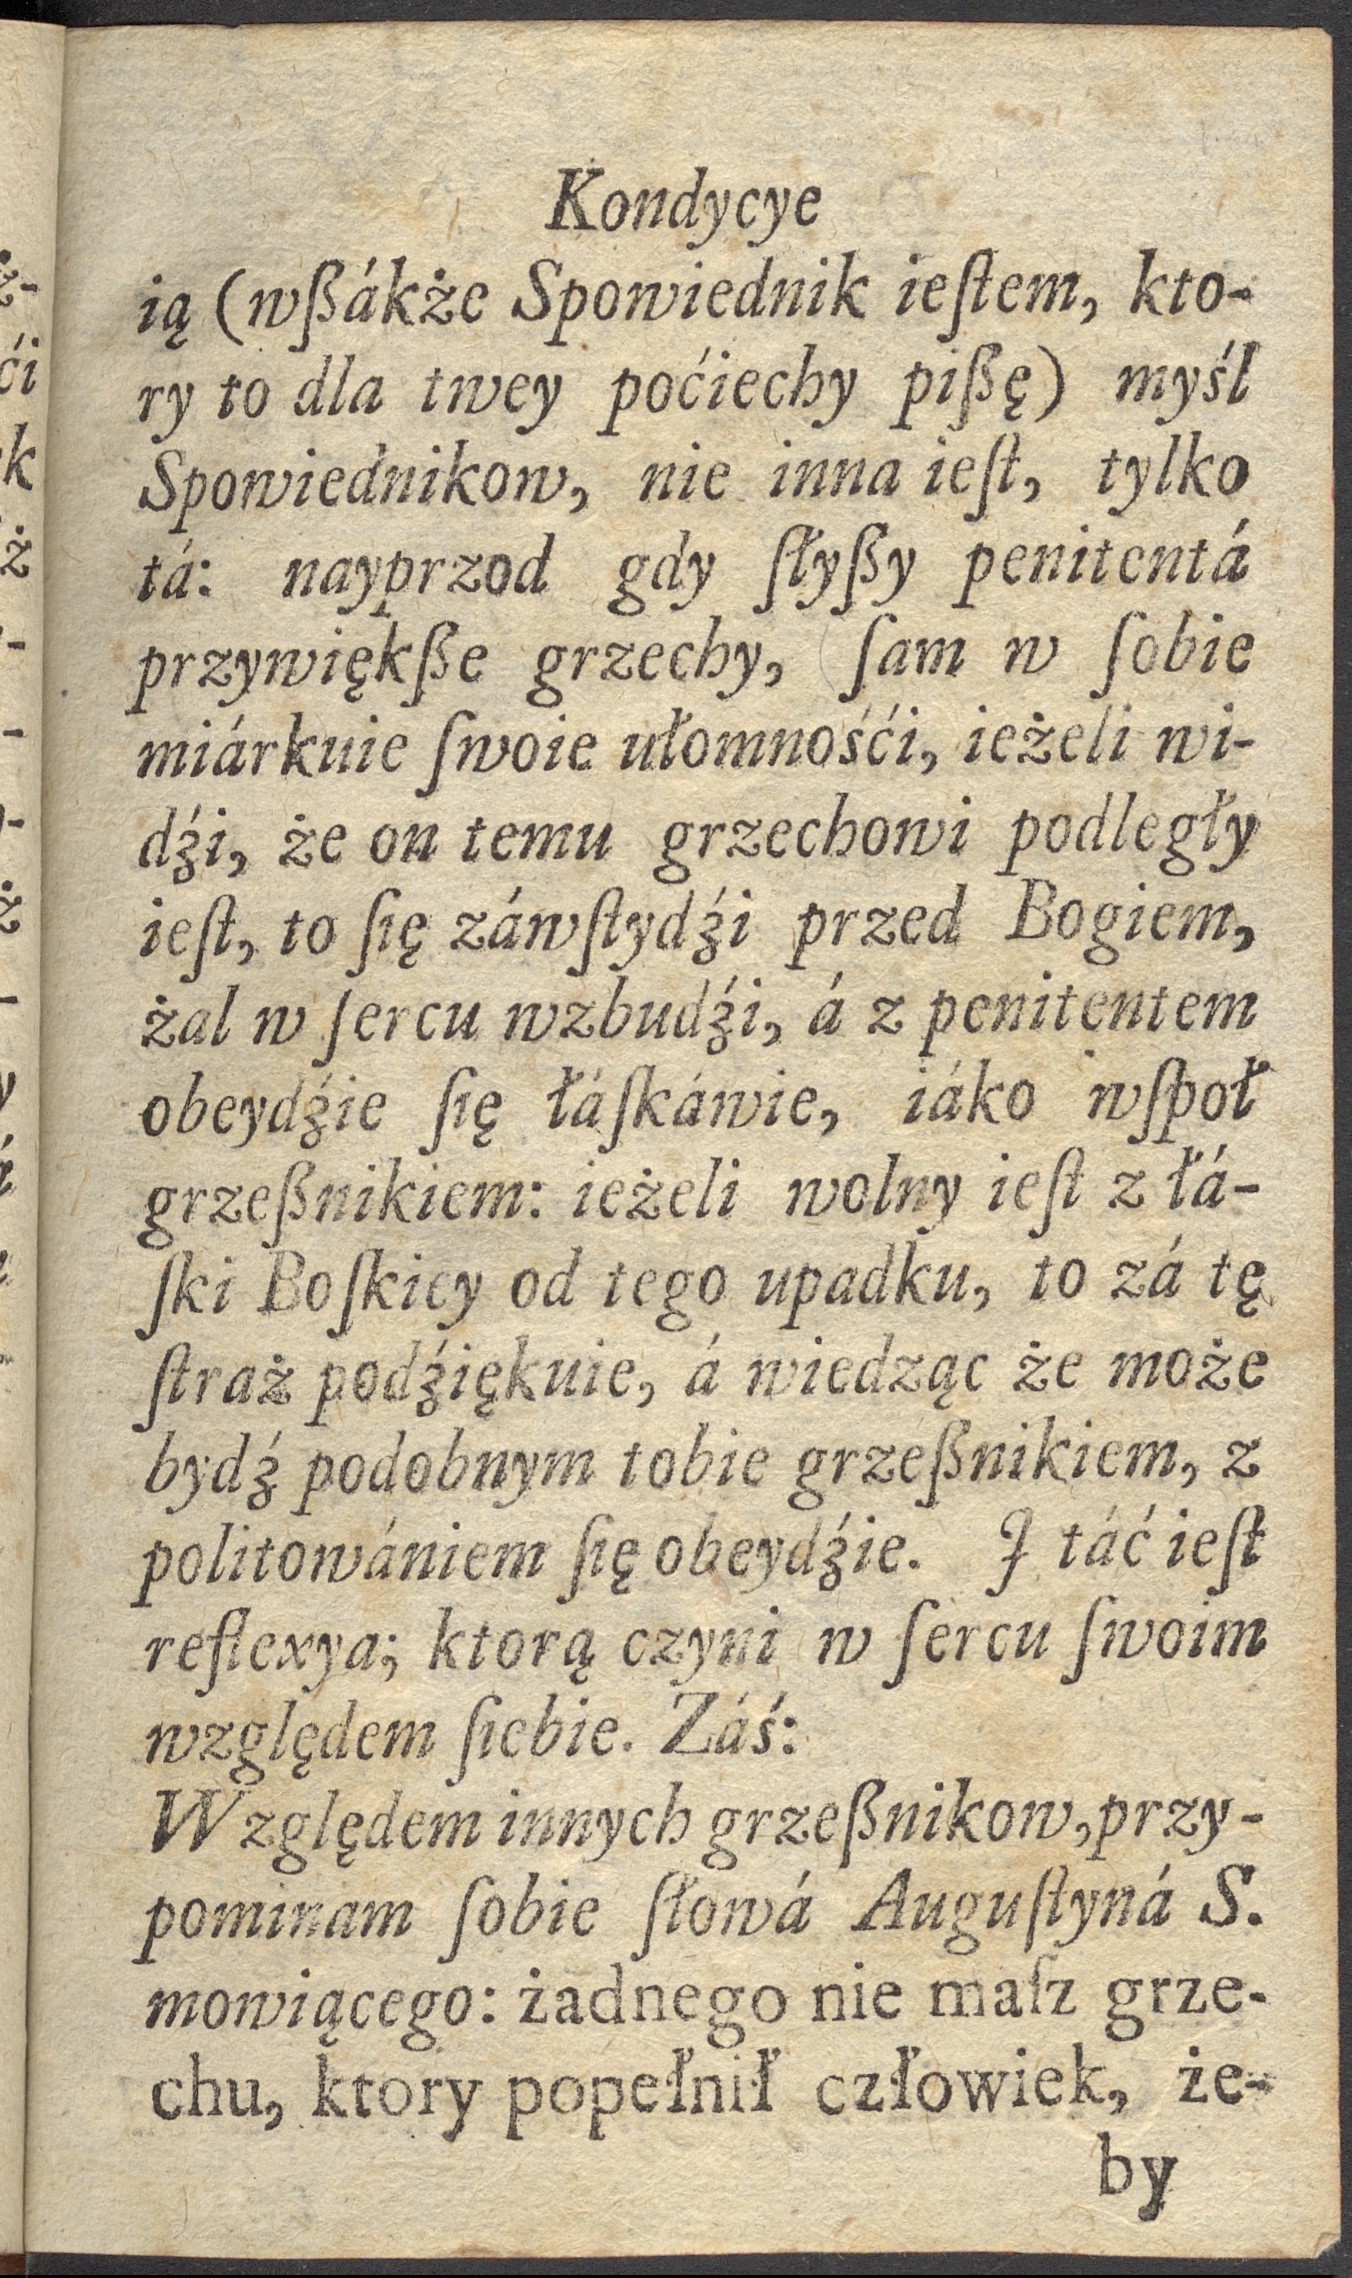 Kondycye
ią (wßákże Spowiednik ieſtem, kto-
ry to dla twey poćiechy pißę) myśl
Spowiednikow, nie inna ieſt, tylko
tá: nayprzod gdy ſłyßy penitentá
przywiękße grzechy, ſam w ſobie
miárkuie ſwoie ułomnośći, ieżeli wi-
dźi, że on temu grzechowi podległy
ieſt, to ſię záwſtydźi przed Bogiem,
żal w ſercu wzbudźi, á z penitentem
obeydźie ſię łáſkáwie, iáko wſpoł
grzeßnikiem: ieżeli wolny ieſt z łá-
ſki Boſkiey od tego upadku, to zá tę
ſtraż podźiękuie, á wiedząc że może
bydź podobnym tobie grzeßnikiem, z
politowániem ſię obeydźie. J táć ieſt
reflexya; ktorą czyni w ſercu ſwoim
względem ſiebie. Záś:
Względem innych grzeßnikow, przy-
pominam ſobie ſłowá Auguſtyná S.
mowiącego: żadnego nie maſz grze-
chu, ktory popełnił człowiek, że-
by